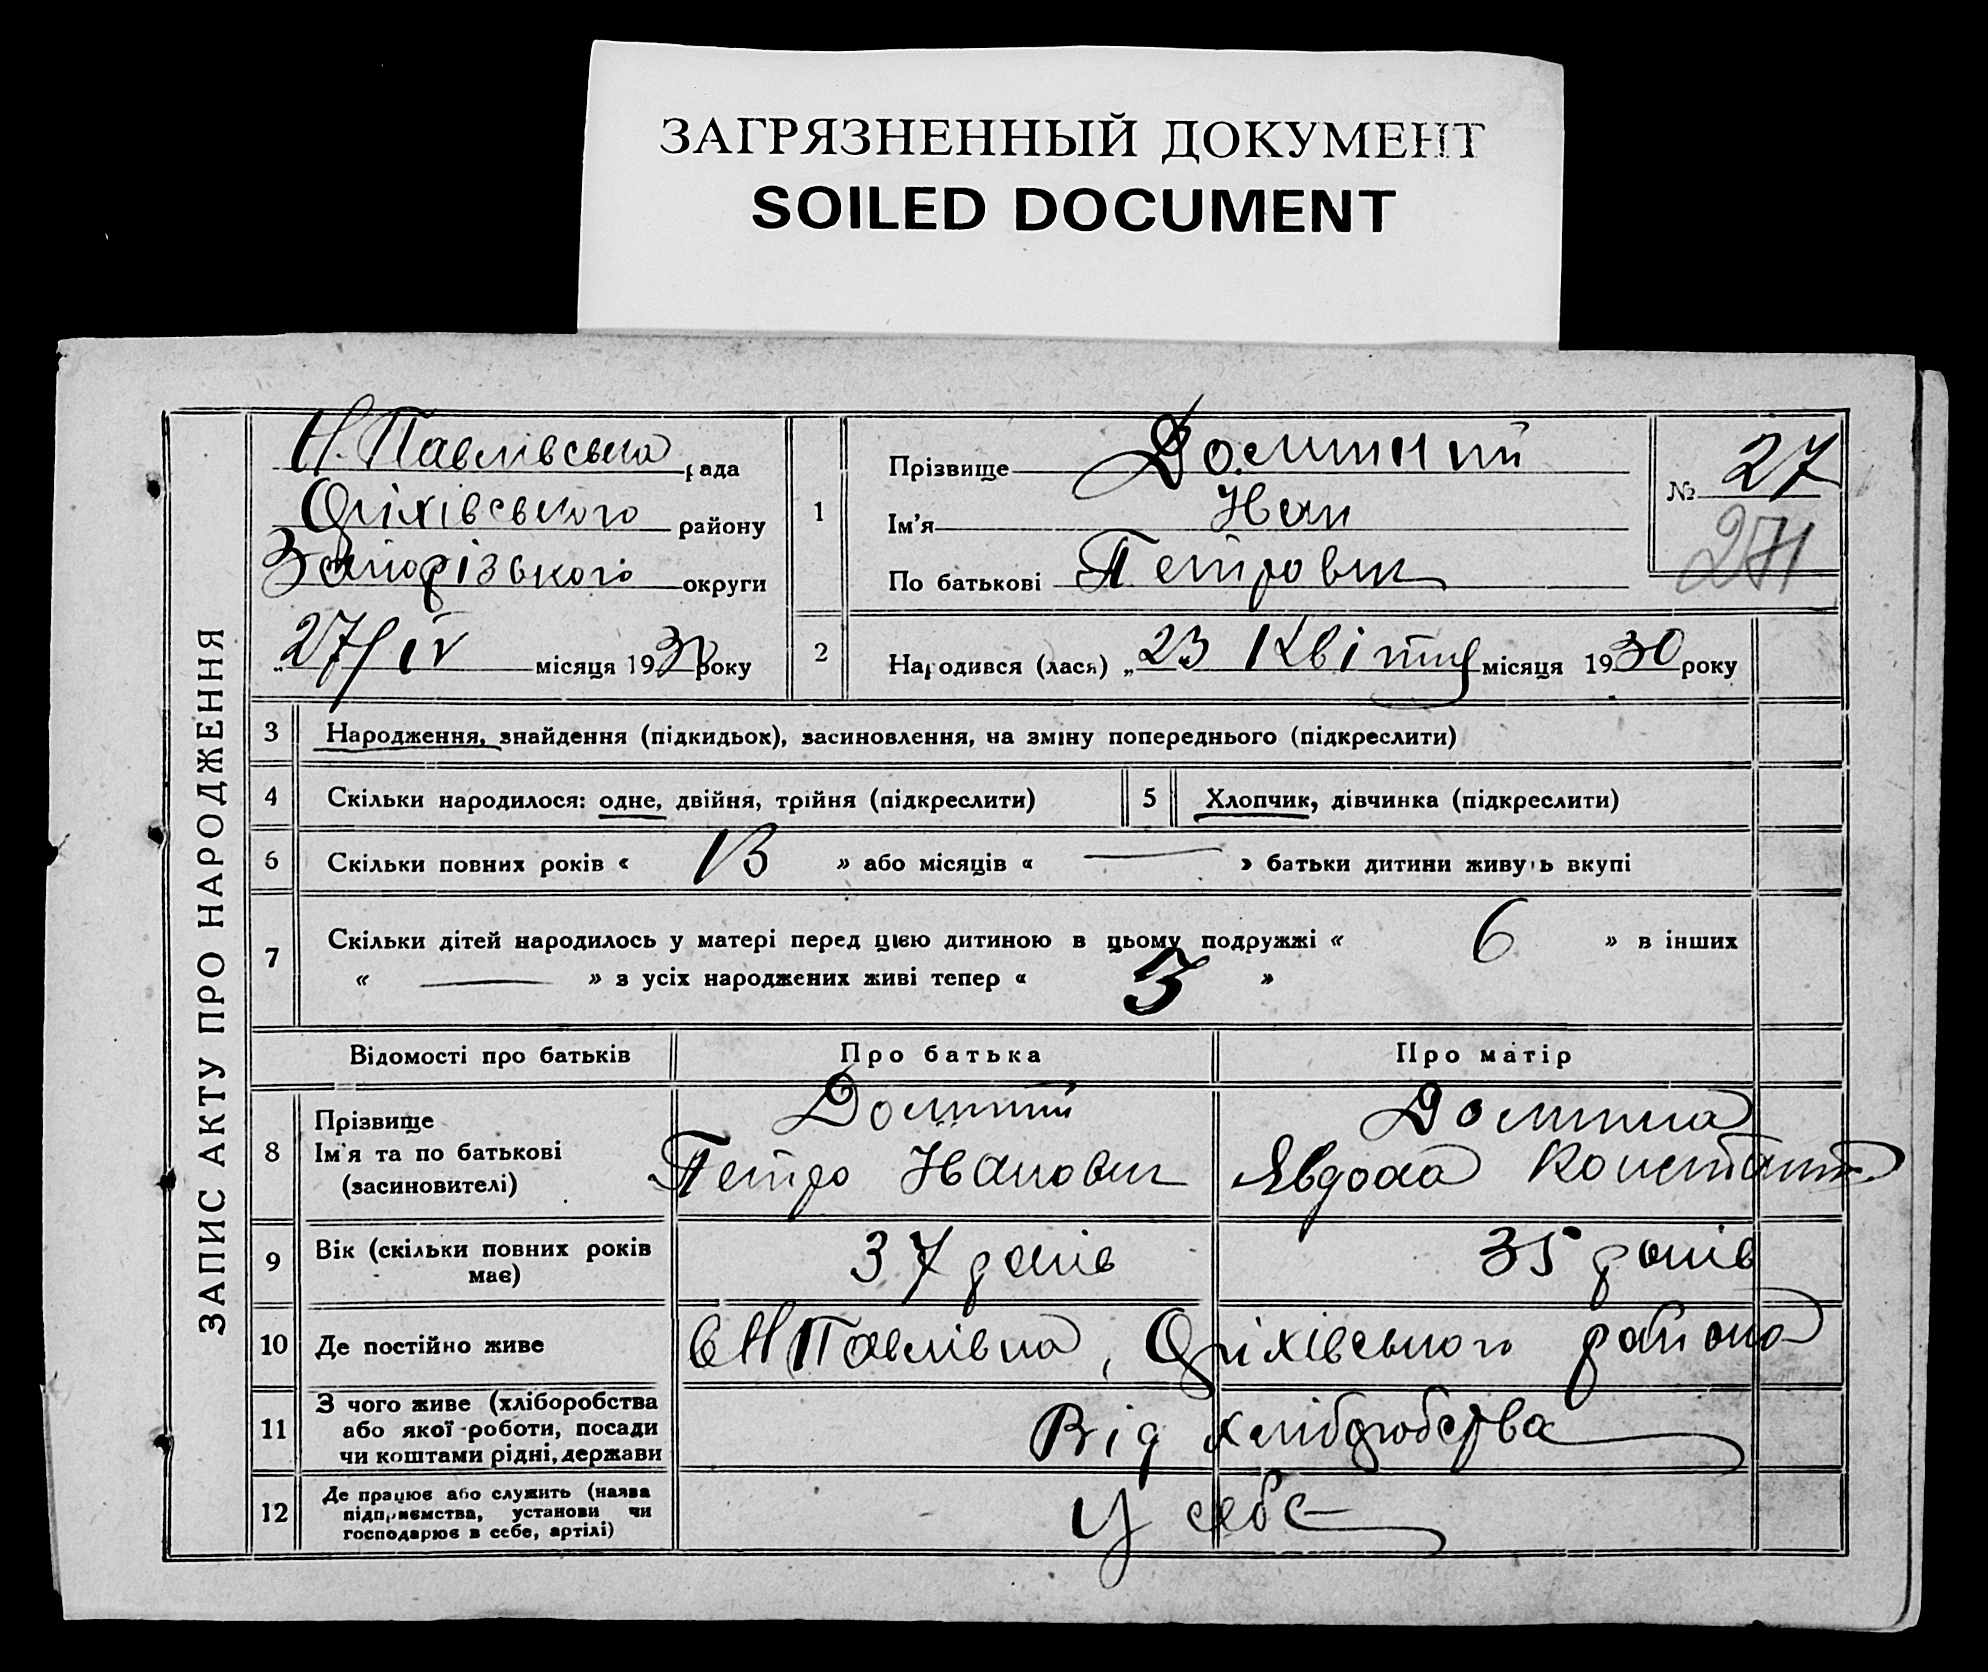 ЗАГРЯЗНЕННЫЙ ДОКУМЕНТ
SOILED DOCUMENT
ЗАПИС АКТУ ПРО НАРОДЖЕННЯ
Н. Павлівська рада
Оріхівського району
Запорізького округи
„27/IV місяця 1930 року
1
Прізвище
Ім'я Иван
По батькові Петрович
№ 27
271
2
Народився (лася) „23 Квітня місяця 1930 року
3 Народження, знайдення (підкидьок), засиновлення, на зміну попереднього (підкреслити)
4 Скільки народилося: одне, двійня, трійня (підкреслити) 5 Хлопчик, дівчинка (підкреслити)
6 Скільки повних років « 13 » або місяців « — » батьки дитини живуть вкупі
7 Скільки дітей народилось у матері перед цією дитиною в цьому подружжі « 6 » в інших
« — » з усіх народжених живі тепер « 5 »
Відомості про батьків Про батька Про матір
8 Прізвище
Ім'я та по батькові Петро Иванович Явдоха Констант.
(засиновителі)
9 Вік (скільки повних років має) 37 років 35 років
10 Де постійно живе с Н Павлівка, Оріхівського района
11 З чого живе (хліборобства
або якої роботи, посади Від хліборобства
чи коштами рідні, держави
12 Де працює або служить (назва
підприємства, установи чи У себе
господарює в себе, артілі)